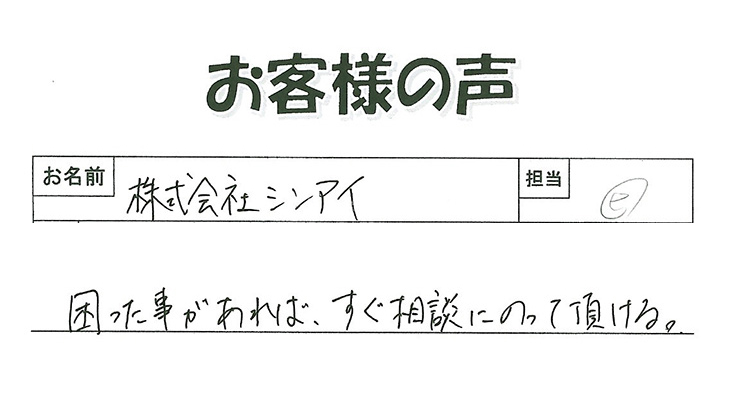 お客様の声
お名前 株式会社シンアイ 担当
困った事があれば、すぐ相談にのって頂ける。